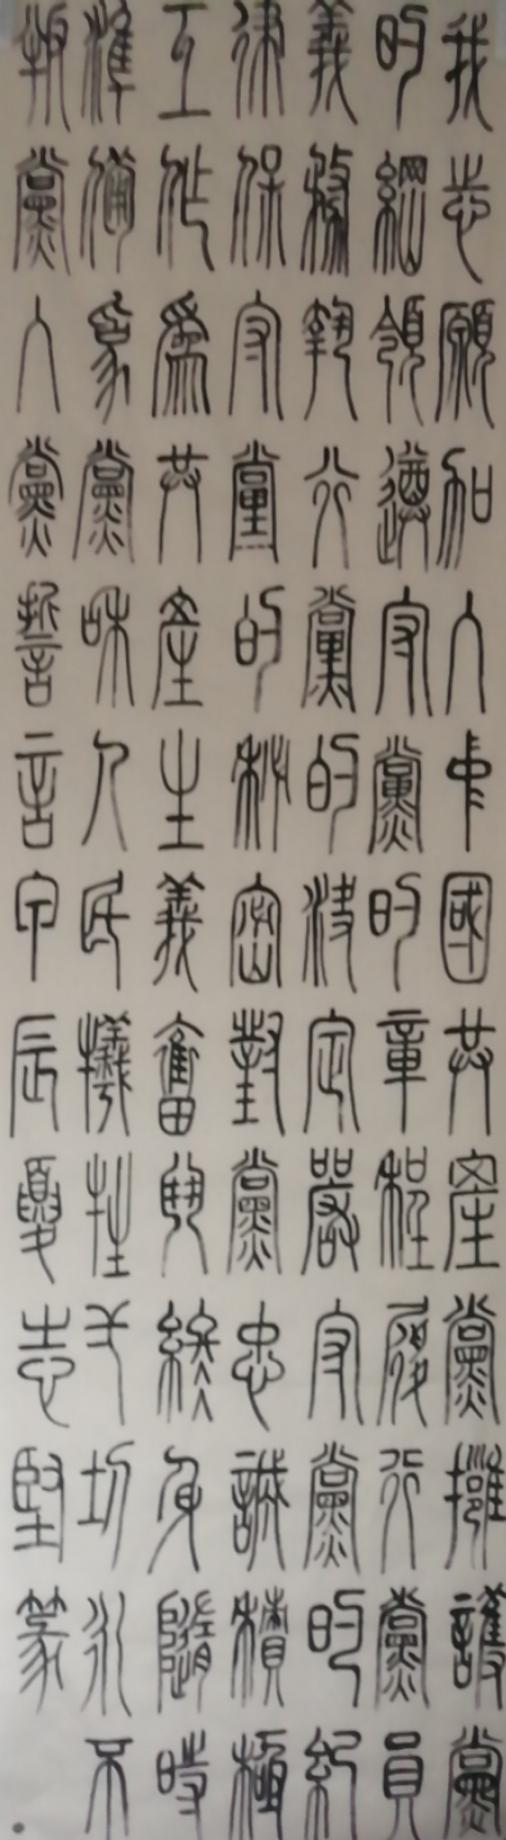 我志願加入中國共產黨擁護黨
的綱領遵守黨的章程履行黨員
義務執行黨的決定嚴守黨的紀
律保守黨的秘密對黨忠誠積極
工作為共產主義奮鬥終身隨時
準備為黨和人民犧牲一切永不
叛黨入黨誓言甲辰夏志堅篆